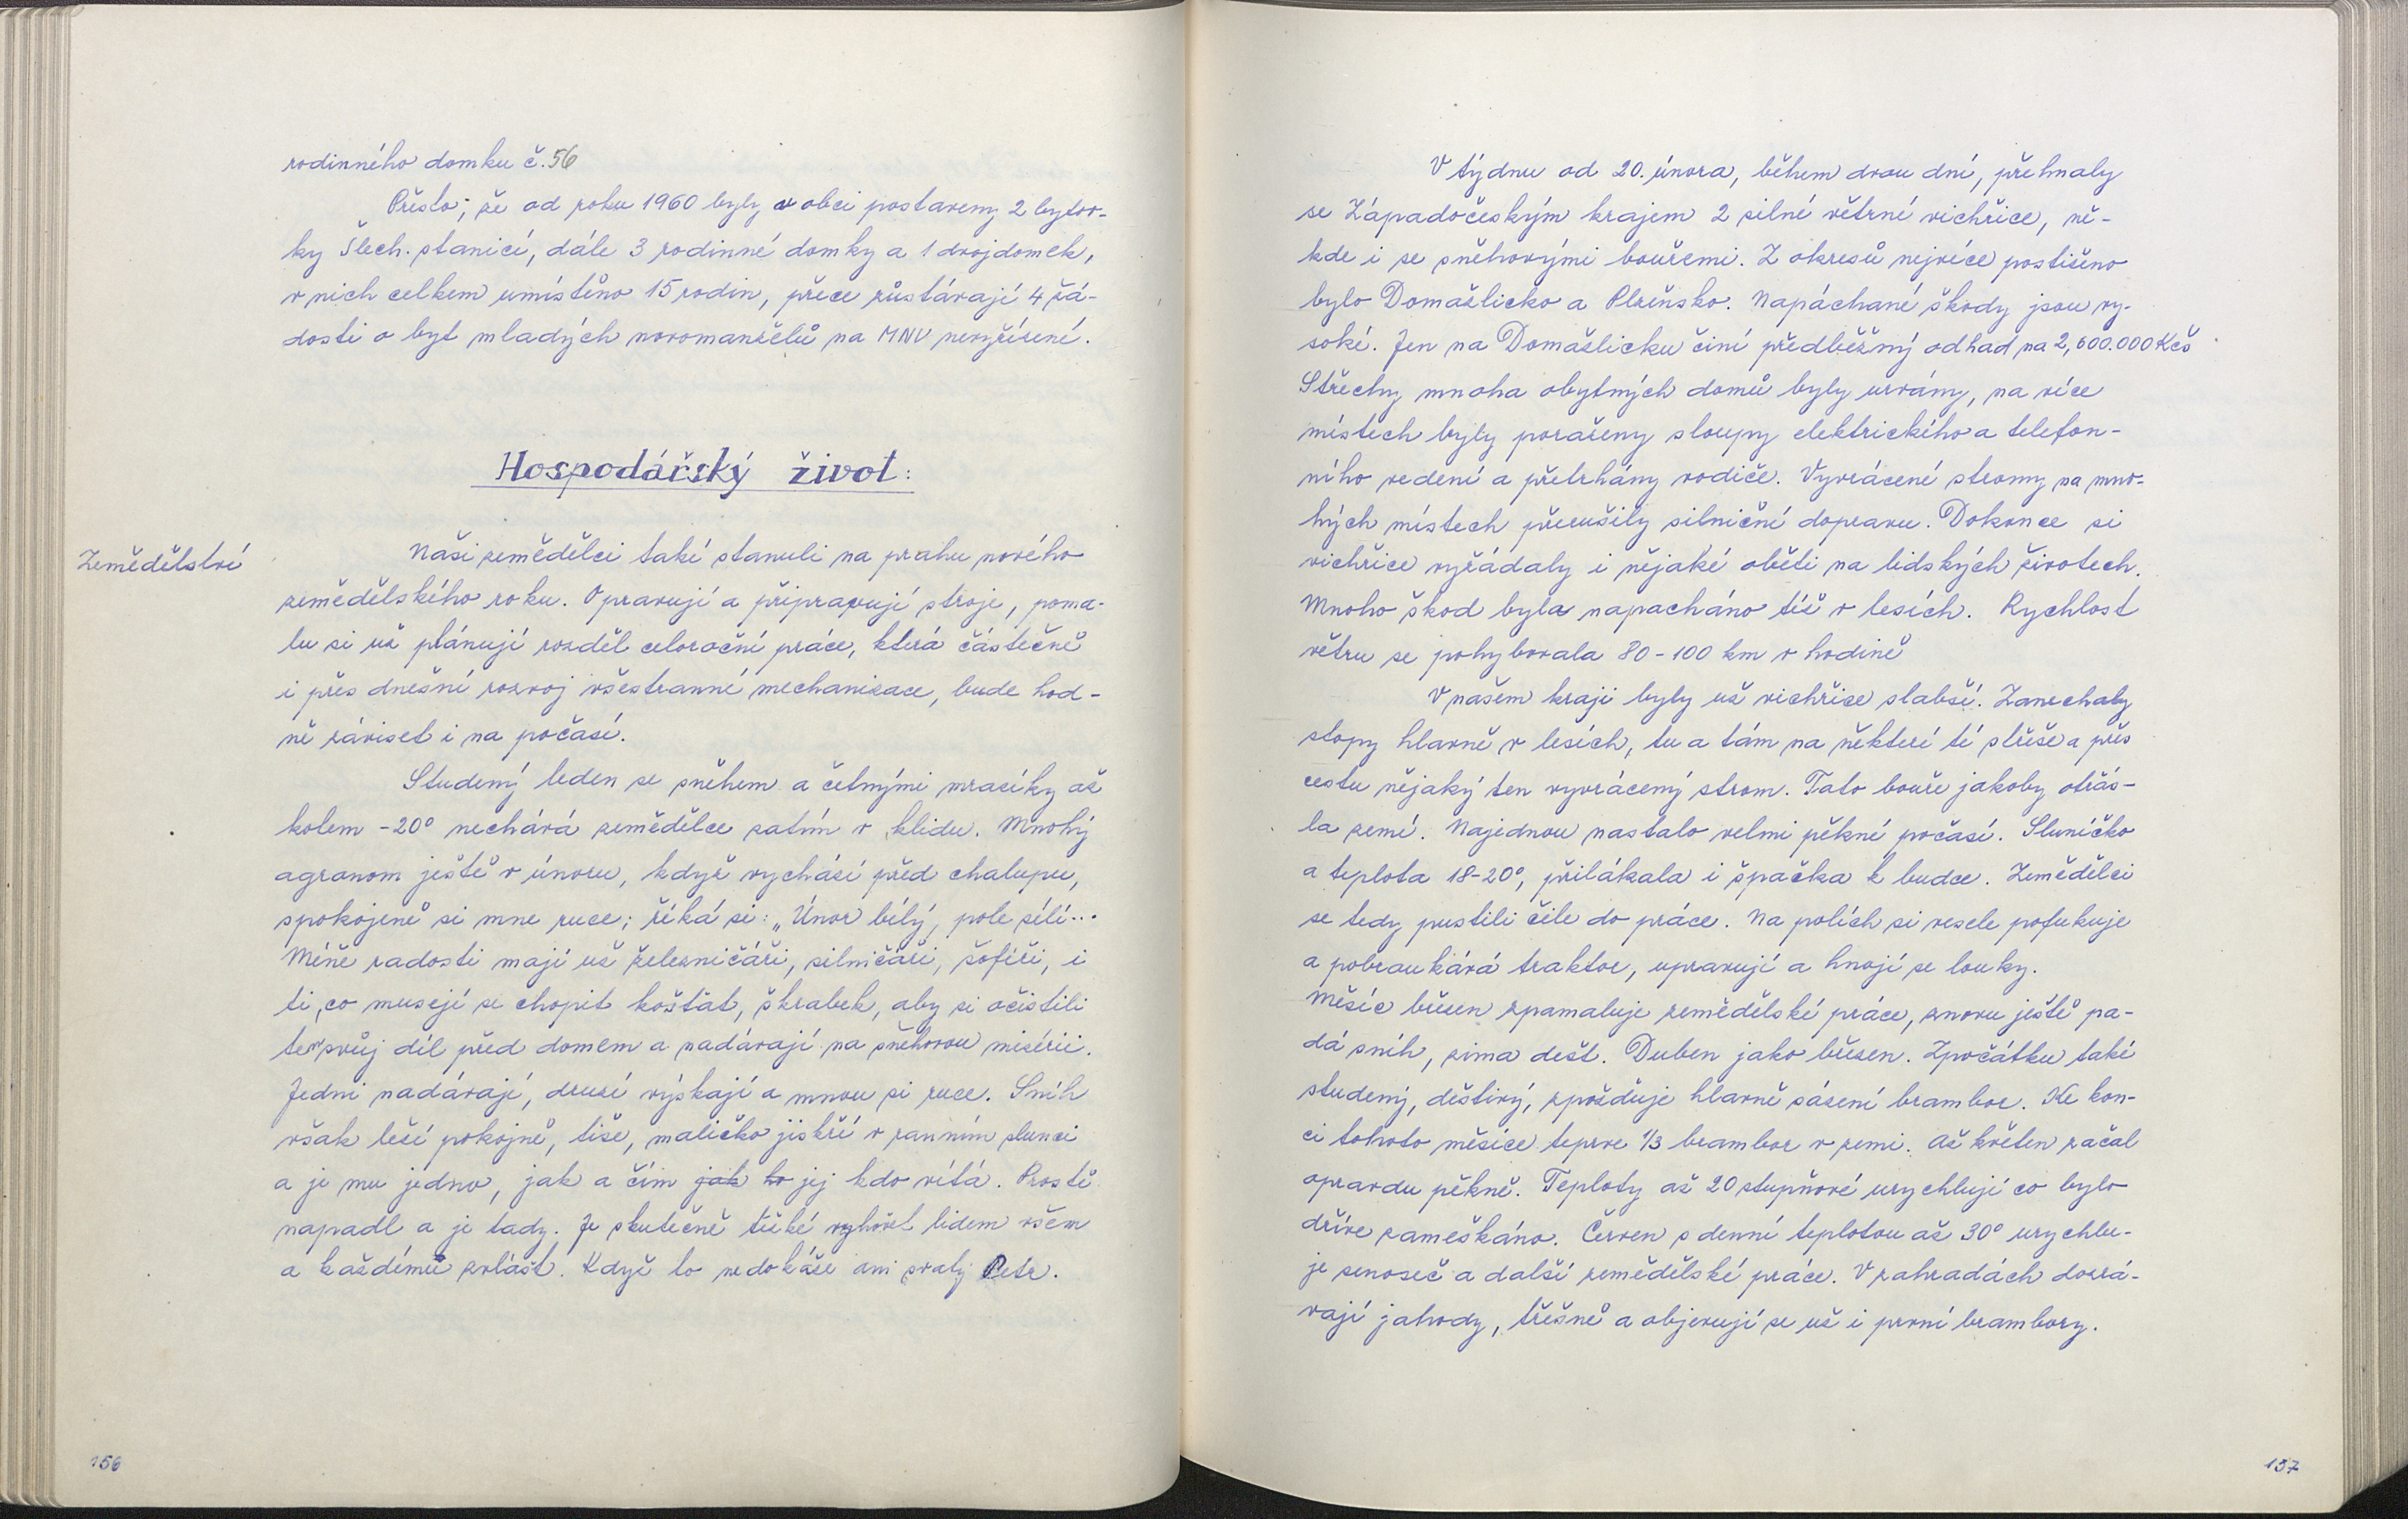 rodinného domku č. 56
Přesto, že od roku 1960 byly v obci postaveny 2 bytov-
ky Šlech. stanicí, dále 3 rodinné domky a 1 dvojdomek,
v nich celkem umístěno 15 rodin, přece zůstávají 4 žá-
dosti o byt mladých novomanželů na MNV nevyřízené.
Hospodářský život:
Zemědělství
Naši zemědělci také stanuli na prahu nového
zemědělského roku. Opravují a připravují stroje, poma-
lu si už plánují rozděl celoroční práce, která částečně
i přes dnešní rozvoj všestranné mechanizace, bude hod-
ně záviset i na počasí.
Studený leden se sněhem a četnými mrazíky až
kolem -20° nechává zemědělce zatím v klidu. Mnohý
agronom ještě v únoru, když vychází před chalupu,
spokojeně si mne ruce; říká si: „Únor bílý, pole sílí...
Méně radosti mají už železničáři, silničáři, šoféři, i
ti, co musejí se chopit košťat, škrabek, aby si očistili
ten svůj díl před domem a nadávají na sněhovou misérii.
Jedni nadávají, druzí výskají a mnou si ruce. Sníh
však leží pokojně, tiše, maličko jiskří v ranním slunci
a je mu jedno, jak a čím jak ho jej kdo vítá. Prostě
napadl a je tady. Je skutečně těžké vyhovět lidem všem
a každému zvlášt. Když to nedokáže ani svatý Petr.
156
V týdnu od 20. února, během dvou dní, přehnaly
se Západočeským krajem 2 silné větrné vichřice, ně-
kde i se sněhovými bouřemi. Z okresů nejvíce postiženo
bylo Domažlicko a Plzeňsko. Napáchané škody jsou vy-
soké. Jen na Domažlicku činí předběžný odhad na 2,600.000 Kčs
Střechy mnoha obytných domů byly urvány, na více
místech byly poraženy sloupy elektrického a telefon-
ního vedení a přetrhány vodiče. Vyvrácené stromy na mno-
hých místech přerušily silniční dopravu. Dokonce si
vichřice vyžádaly i nějaké oběti na lidských životech.
Mnoho škod byla napacháno též v lesích. Rychlost
větru se pohybovala 80-100 km v hodině
V našem kraji byly už vichřice slabší. Zanechaly
stopy hlavně v lesích, tu a tám na některé té střeše a přes
cestu nějaký ten vyvrácený strom. Tato bouře jakoby otřás-
la zemí. Najednou nastalo velmi pěkné počasí. Sluníčko
a teplota 18-20°, přilákala i špačka k budce. Zemědělci
se tedy pustili čile do práce. Na polích si vesele pofukuje
a pobroukává traktor, upravují a hnojí se louky.
Měsíc březen zpamaluje zemědělské práce, znovu ještě pa-
dá sníh, zima dešt. Duben jako březen. Zpočátku také
studený, deštivý, zpožďuje hlavně sázení brambor. Ke kon-
ci tohoto měsíce teprve 1/3 brambor v zemi. Až květen začal
opravdu pěkně. Teploty až 20 stupňové urychlují co bylo
dříve zameškáno. Červen s denní teplotou až 30° urychlu-
je senoseč a další zemědělské práce. V zahradách dozrá-
vají jahody, třešně a objevují se už i první brambory.
157